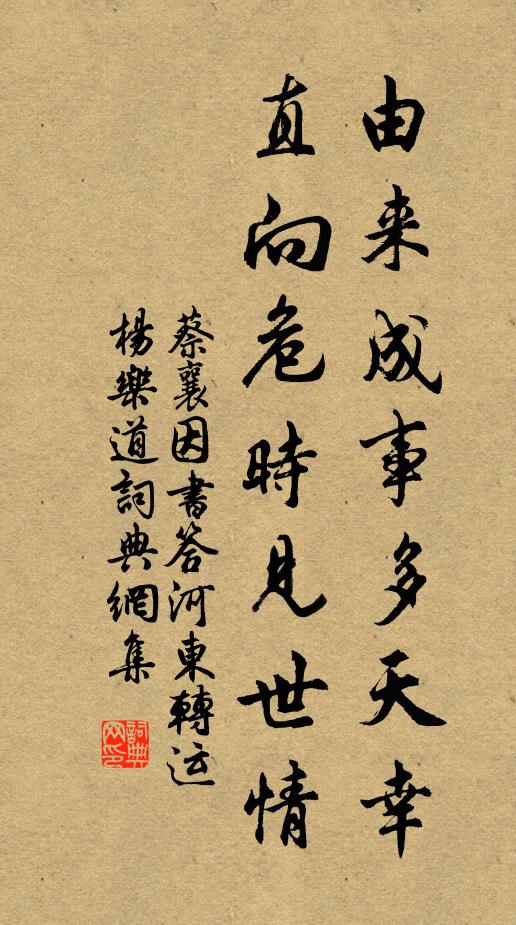 由来成事多天幸
直向危時見世情
蔡襄因書答河東轉运
楊樂道詞典網集
詞典
网印